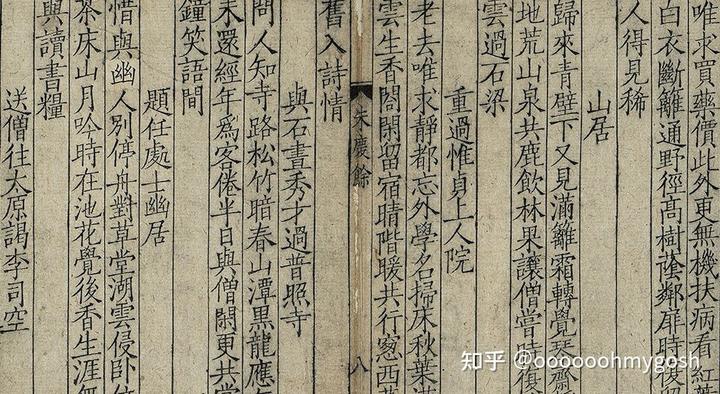 唯求買藥價此外更無機扶病看紅葉
白衣斷籬通野徑高樹蔭鄰扉時復留
人得見稀
山居
歸來青壁下又見滿籬霜轉覺琴齋
地荒山泉共鹿飲林果讓僧嘗時復
雲過石梁
重過惟身上人院
老去唯求靜都忘外學名掃床秋葉滿
雲生香閤閑留宿晴階暖共行窓西
朱慶餘
八
舊入詩情
與石晝秀才過普照寺
問人知寺路松竹暗春山潭黑龍應
未還經年為客倦半日與僧閑更共嘗
鐘笑語間
題任處士幽居
惜與幽人別停舟對草堂湖雲侵臥
茶床山月吟時在池花覺後香生涯無
與讀書糧
送僧往太原謁李司空
知乎 @oooooohmygosh